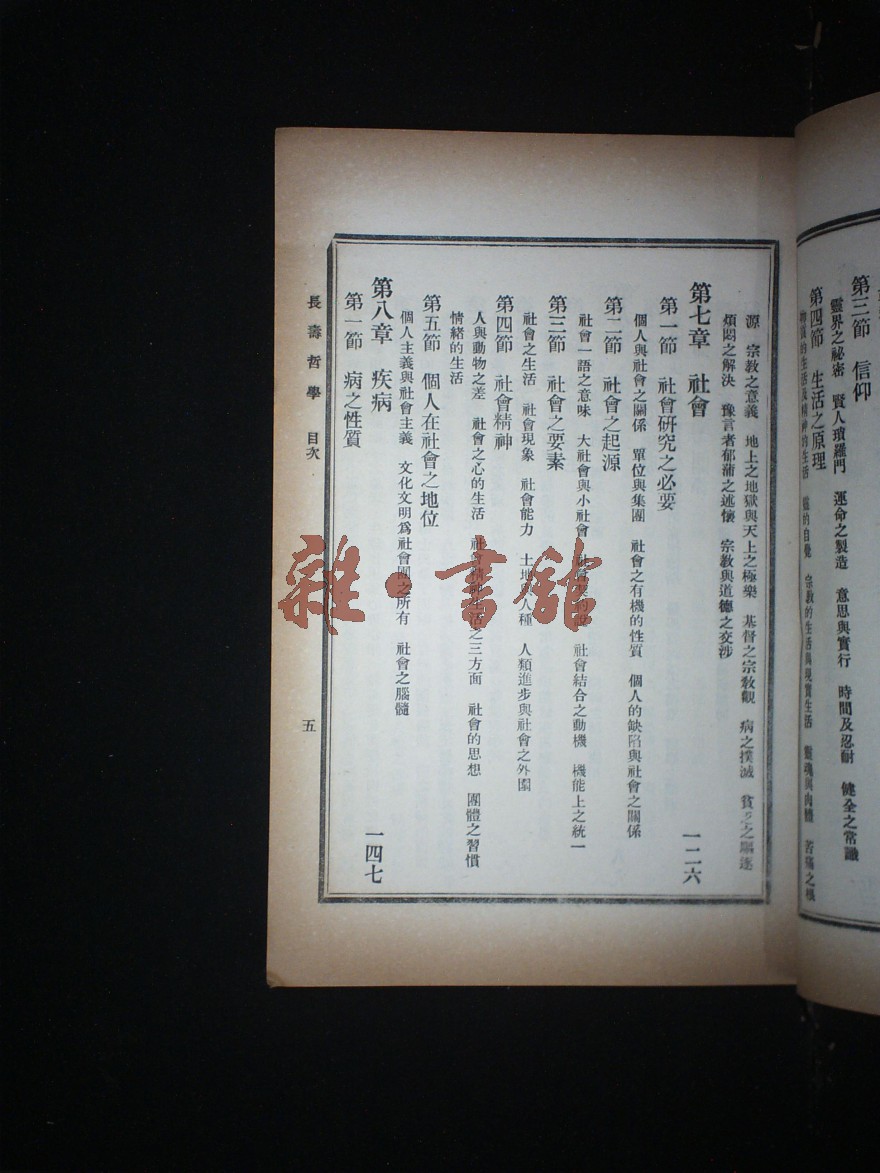 第三節　信仰
靈界之祕密　賢人瑣羅門　運命之製造　意思與實行　時間及忍耐　健全之常識
第四節　生活之原理
物質的生活及精神的生活　靈的自覺　宗教的生活與現實生活　靈魂與肉體　苦痛之根
源　宗教之意義　地上之地獄與天上之極樂　基督之宗教觀　病之撲滅　貧乏之驅逐
煩悶之解決　豫言者郁蒲之述懷　宗教與道德之交涉
第七章　社會　一二六
第一節　社會研究之必要
個人與社會之關係　單位與集團　社會之有機的性質　個人的缺陷與社會之關係
第二節　社會之起源
社會一語之意味　大社會與小社會　社會契約說　社會結合之動機　機能上之統一
第三節　社會之要素
社會之生活　社會現象　社會能力　土地與人種　人類進步與社會之外圍
第四節　社會精神
人與動物之差　社會之心的生活　社會精神生活之三方面　社會的思想　團體之習慣
情緒的生活
第五節　個人在社會之地位
個人主義與社會主義　文化文明爲社會團之所有　社會之腦髓
第八章　疾病　一四七
第一節　病之性質
長壽哲學　目次　五
雜·書館